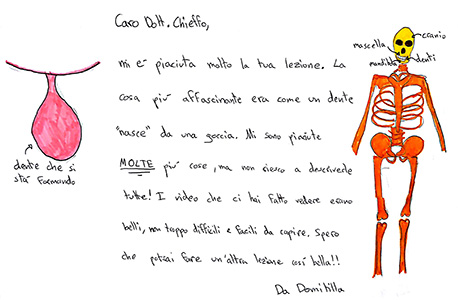 Caro Dott. Chieffo,
mi è piaciuta molto la tua lezione. La
cosa più affascinante era come un dente
"nasce" da una goccia. Mi sono piaciute
MOLTE più cose, ma non riesco a descriverle
tutte! I video che ci hai fatto vedere erano
belli, non troppo difficili e facili da capire. Spero
che potrai fare un'altra lezione così bella!!
Da Domitilla
dente che si
sta formando
cranio
mascella
denti
mandibola